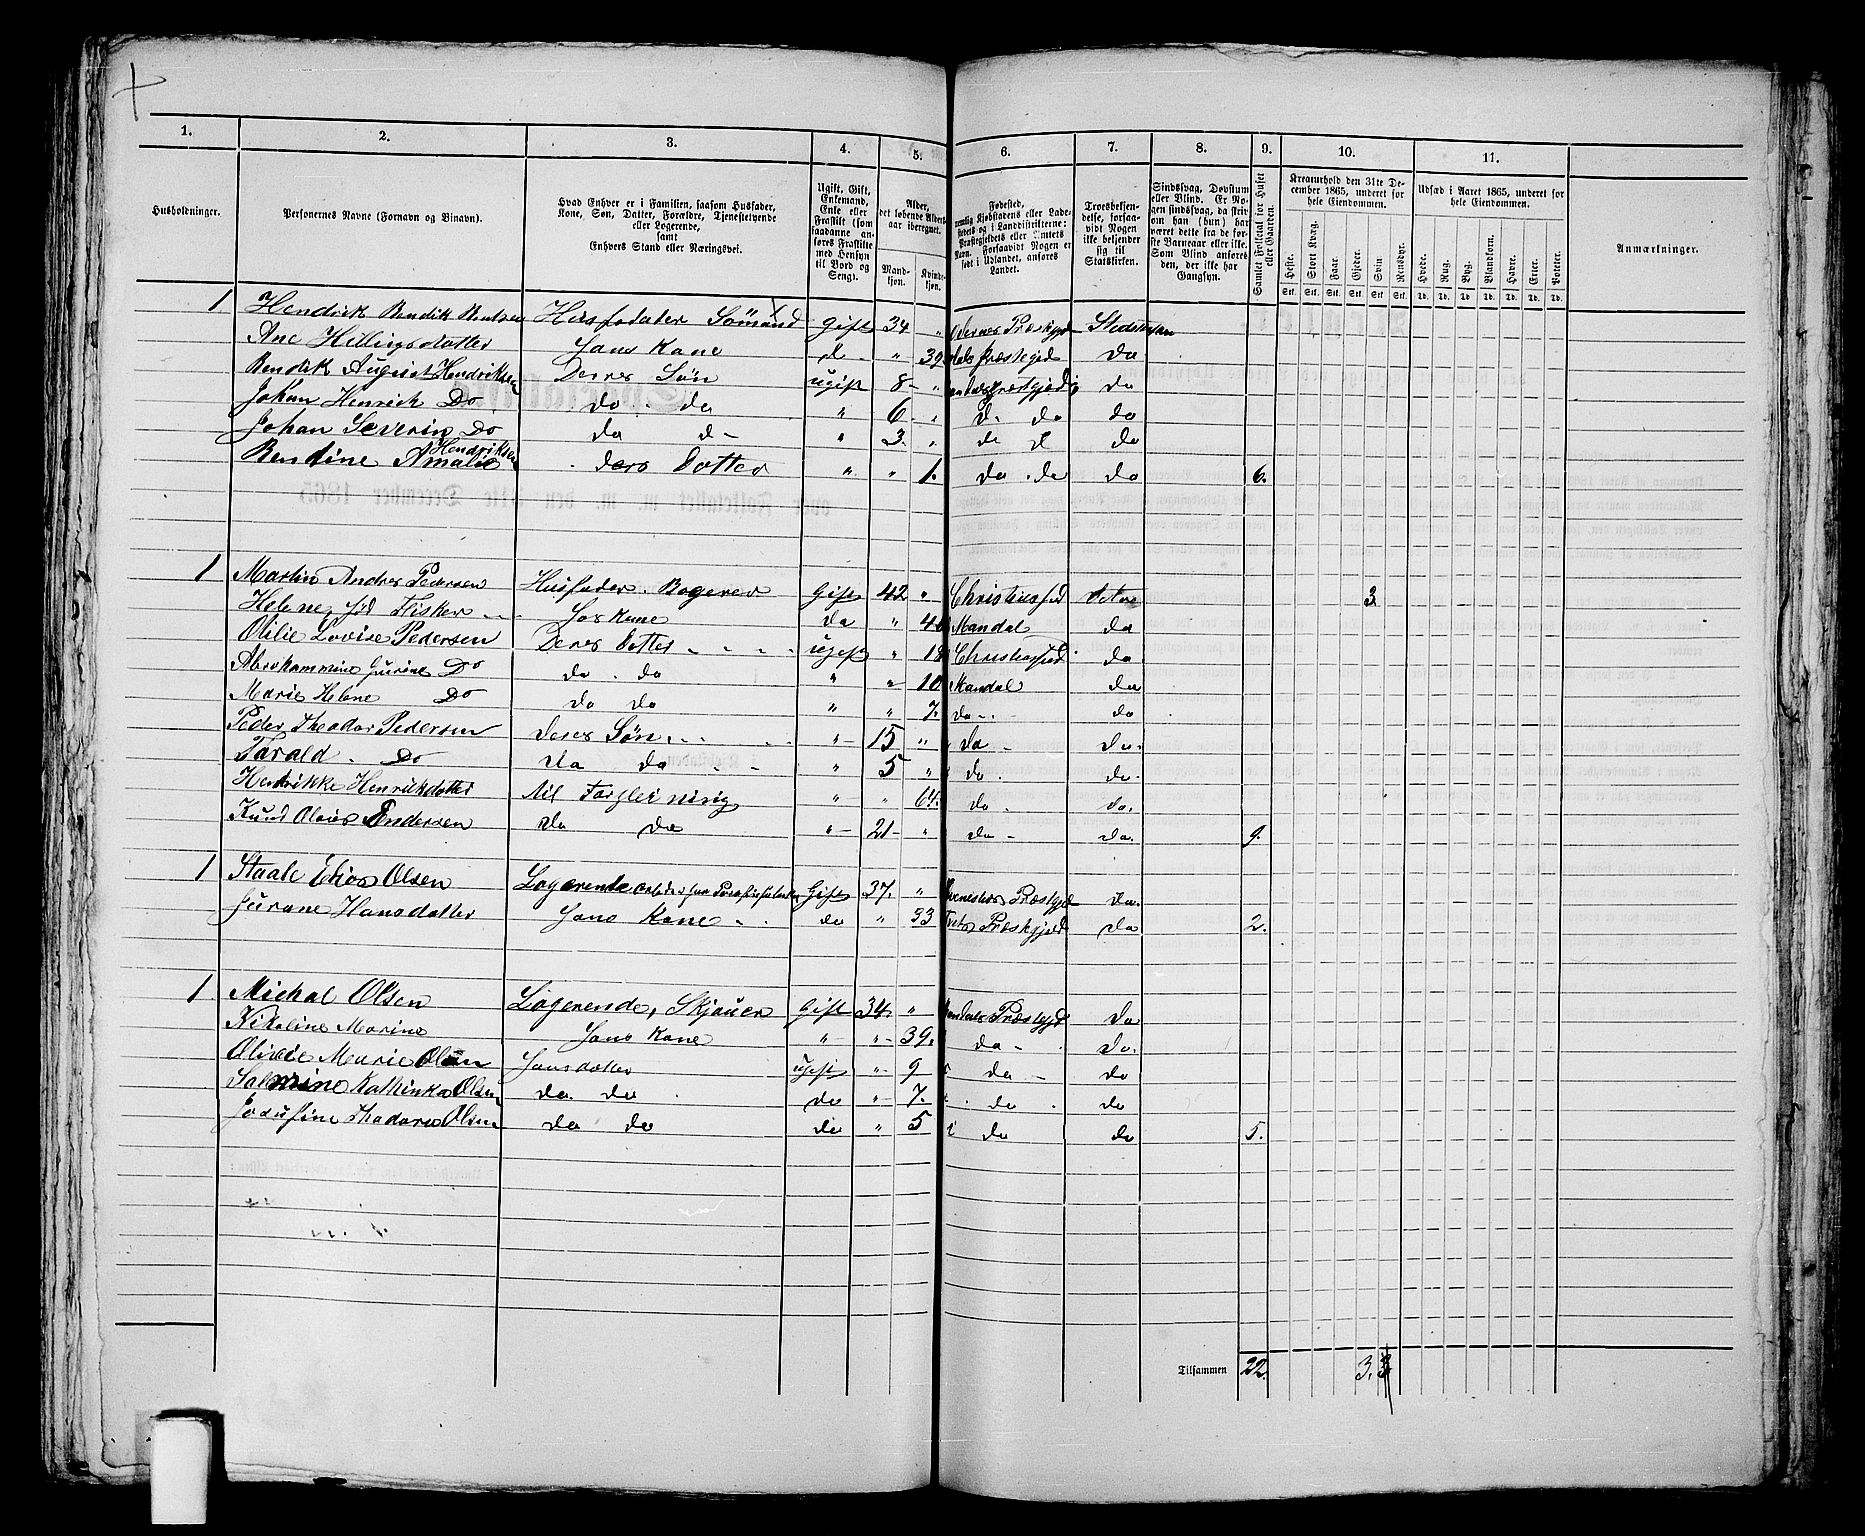 1. 2. 3. 4. 5. 6. 7. 8. 9. 10. 11.
Husholdninger. | Personernes Navne (Fornavn og Binavn). | Hvad Enhver er i Familien, saasom Husfader, Kone, Søn, Datter, Forældre, Tjenestetyende eller Logerende, samt Enhvers Stand eller Næringsvei. | Ugift, Gift, Enkemand, Enke eller Fraskilt (som saadanne anføres Fraskilte med Hensyn til Bord og Seng). | Alder, det løbende Alders-aar iberegnet. Mand-kjøn. Kvinde-kjøn. | Fødested, nemlig Kjøbstadens eller Ladestedets og i Landdistrikterne: Præstegjeldets eller Amtets Navn. Forsaavidt Nogen er født i Udlandet, anføres Landet. | Troesbekjendelse, forsaavidt Nogen ikke bekjender sig til Statskirken. | Sindssvag, Døvstum eller Blind. Er Nogen sindssvag, da skrives om han (hun) har været dette fra de første Barneaar eller ikke. Som Blind anføres den, der ikke har Gangsyn. | Samlet Folketal for Huset eller Gaarden. | Kreaturhold den 31te December 1865, underet for hele Eiendommen. Heste. Stort Kvæg. Faar. Gjeder. Svin. Rensdyr. | Udsæd i Aaret 1865, underet for hele Eiendommen. Hvede. Rug. Byg. Blandkorn. Havre. Erter. Poteter. | Anmærkninger.
Stk. Stk. Stk. Stk. Stk. Stk. Td. Td. Td. Td. Td. Td. Td.
1 Hendrik Bendik Bentsen Husfader Sømand Gift 34 " Præstgjd Statskirken
Ane Hellingsdatter Hans Kone do " 39 Præstegjd do
Bendik August Hendriksen Deres Søn ugift 8 " do
Johan Henrich Do do do " 6 " do do do
Johan Severin Do do do " 3 " do do do
Bendine Amalie Hendriksen ders Datter " " 1. do do do 6.
1 Martin Andres Pedersen Husfader. Gift 42 " Christiansd 3
Helene, fød Fisker Hs Kone do " Mandal do
Otilie Lovise Pedersen Deres Datter ugift " 18 Christiansd do
Abrahammine Jurine Do do do " " 10 Mandal do
Marie Helene Do do do " " 7. do do
Peder Theodor Pedersen deres Søn " 15 " do do.
Tarald Do do do " 5 " do do.
Hendrikke Henriksdatter Nil Forpleining " " 64. do do.
Knud Olaus Endersen do do " 21 " do do. 9.
1 Staale Elias Olsen Logerende Gift 37. " Præstgjd do.
Jurane Hansdatter Hans Kone do " 33 Præstgjeld do 2.
1 Michal Olsen Logerende, Skjøuer Gift 34 " Mandals Præstgjd do
Nikoline Marine Hans Kone " " 39. do do.
Olivie Marie Olsen Hans datter ugift " 9 do do
Salmine Kathinka Olsen do do do " 7. do do
Josefine Thadora Olsen do do do " 5 do do 5.
Tilsammen 22. 3.